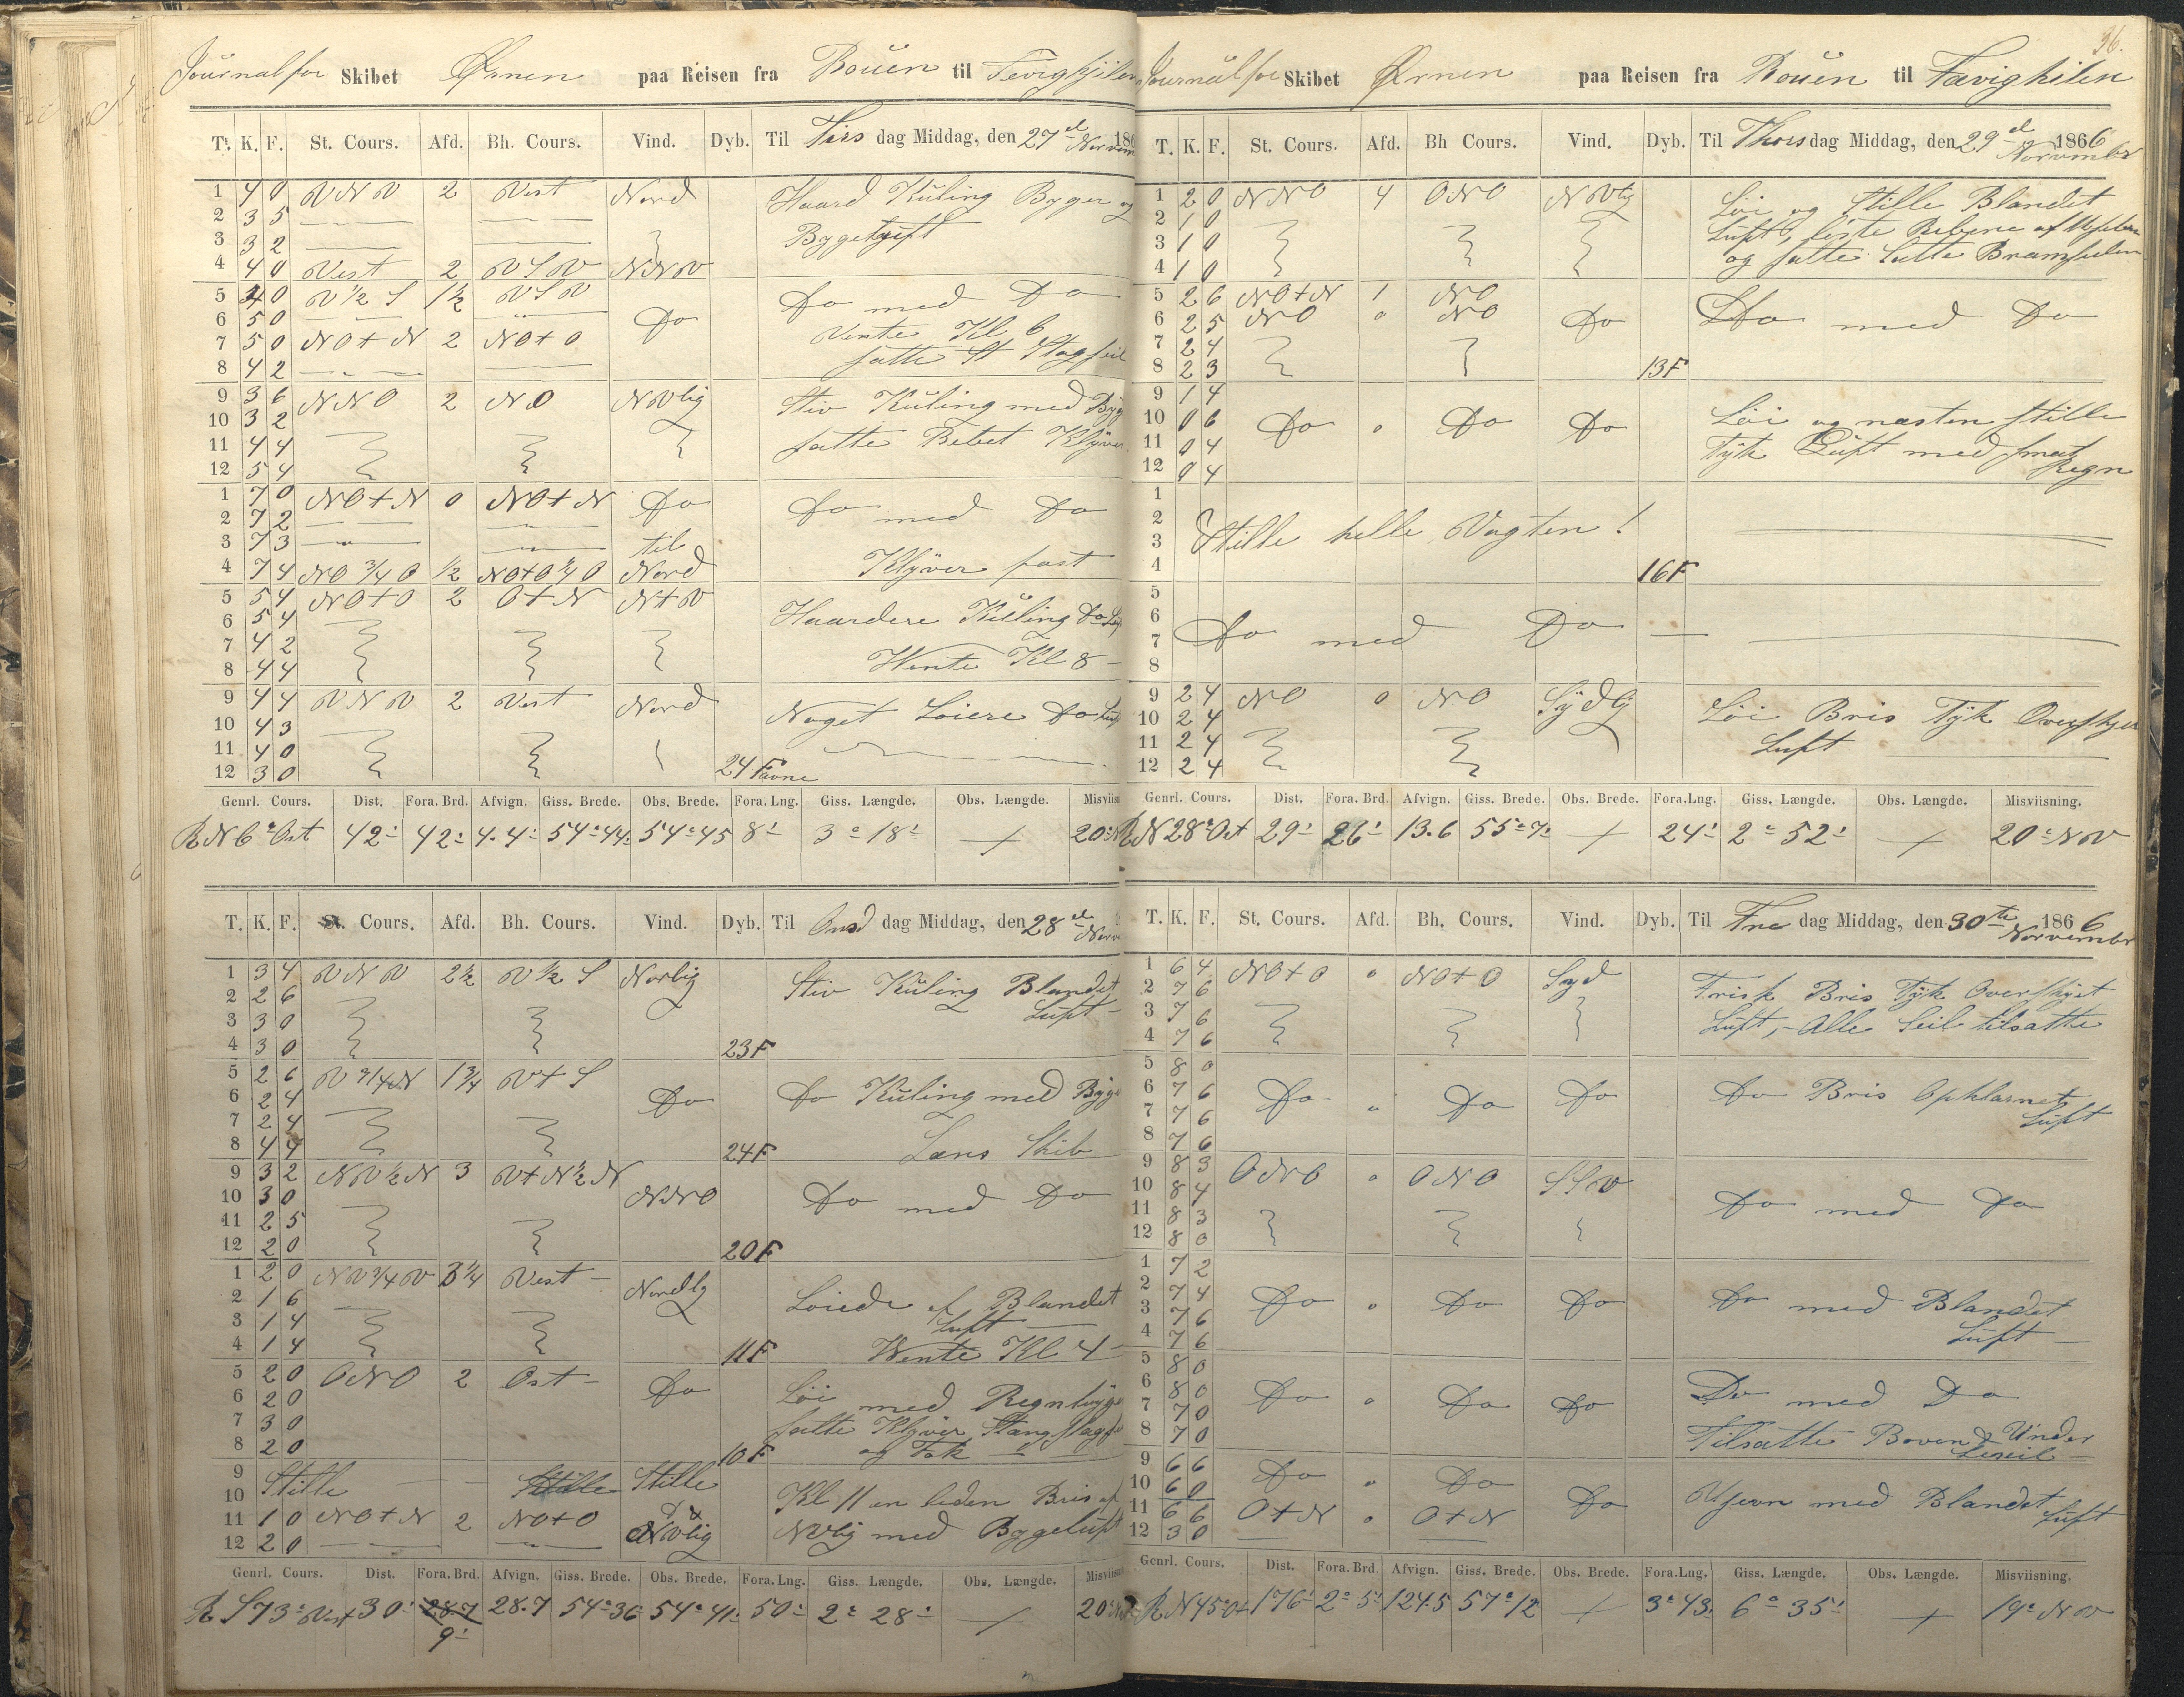 Journal for Skibet Ørnen paa Reisen fra Rouen til Fevighkilen
Tt. K. F. St. Cours. Afd. Bh. Cours. Vind. Dyb. Til Tirs dag Middag, den 27de Novem 186
1 4 0 VNV 2 Vest Nord Haard Kuling Byger og
2 3 5 Bygeluft
3 3 2
4 4 0 Vest 2 VSV NNV
5 4 0 V 1/2 S 1 1/2 VSV Do Do med Do
6 5 0 Vente Kl 6
7 5 0 NO+N 2 NO+O
8 4 2 satte St Stagseil
9 3 6 NNO 2 NO NVlig Stiv Kuling med Byg
10 3 2
11 4 4 satte Rebet Klyver
12 5 4
1 7 0 NO+N 0 NO+N Do Do med Do
2 7 2
3 7 3 til
4 7 4 NO 3/4 O 1/2 NO+O 1/4 O Nord Klyver fast
5 5 4 NO+O 2 O+N N+V Haardere Kuling Do Luf
6 5 4
7 4 2
8 4 4 Wente Kl 8 -
9 4 4 VNV 2 Vest Nord Noget Løiere Do Luf
10 4 3
11 4 0
12 3 0 24 Favne
Genrl. Cours. Dist. Fora. Brd. Afvign. Giss. Brede. Obs. Brede. Fora. Lng. Giss. Længde. Obs. Længde. Misviisn
R N 6° Ost 42' 42' 4.4' 54° 44' 54° 45 8' 3° 18' + 20° N
T. K. F. St. Cours. Afd. Bh. Cours. Vind. Dyb. Til Onsd dag Middag, den 28de Nove
1 3 4 VNV 2 1/2 V 1/2 S Norlig Stiv Kuling Blandet
2 2 6 Luft -
3 3 0
4 3 0 23 F
5 2 6 V 3/4 N 1 3/4 V+S Do Do Kuling med Byge
6 2 4
7 2 4
8 4 4 24 F Læns Skib
9 3 2 NV 1/2 N 3 V+N 1/2 N NNO Do med Do
10 3 0
11 2 5
12 2 0 20 F
1 2 0 NV 3/4 V 3 1/4 Vest - Nordlg Løiede af Blandet
2 1 6 Luft
3 1 4
4 1 4 11 F Wente Kl 4 -
5 2 0 ONO 2 Ost - Do Løi med Regnbyge
6 2 0 satte Klyver Stangstagse
7 3 0 og Fok -
8 2 0 10 F
9 Stille Stille Stille Kl 11 en leden Bris af
10
11 1 0 NO+N 2 NO+O NVlig NVlig med Bygeluft
12 2 0
Genrl. Cours. Dist. Fora. Brd. Afvign. Giss. Brede. Obs. Brede. Fora. Lng. Giss. Længde. Obs. Længde. Misviisn
R S 73° Vest 30' 28.7 28.7 54° 36 54° 41' 50' 2° 28' + 20° N
9'
36.
Journal for Skibet Ørnen paa Reisen fra Rouen til Fævighkilen
T. K. F. St. Cours. Afd. Bh Cours. Vind. Dyb. Til Thors dag Middag, den 29de Novembr 1866
1 2 0 NNO 4 ONO NVlig Løi og Stille Blandet
2 1 0 Luft, løste Rebene af Mseilen
3 1 0 og satte Bramseilen
4 1 0
5 2 6 NO+N 1 NO Do Do med Do
6 2 5 NO " NO
7 2 4
8 2 3 13 F
9 1 4 Løi og næsten stille
10 0 6 Do " Do Do Tyk Luft med smat
11 0 4 Regn
12 0 4
1
2 Stille helle Vagten !
3
4 16 F
5
6 Do med Do
7
8
9 2 4 NO 0 NO Sydlig Løi Bris Tyk Overskyet
10 2 4 Luft
11 2 4
12 2 4
Genrl. Cours. Dist. Fora. Brd. Afvign. Giss. Brede. Obs. Brede. Fora. Lng. Giss. Længde. Obs. Længde. Misviisning.
R N 28° Ost 29' 26' 13.6 55° 7' + 24' 2° 52' + 20° NV
T. K. F. St. Cours. Afd. Bh. Cours. Vind. Dyb. Til Fre dag Middag, den 30te Novembr 1866
1 6 4 NO+O " NO+O Syd Frisk Bris Tyk Overskyet
2 7 6 Luft, - Alle Seil tilsatte
3 7 6
4 7 6
5 8 0 Do Bris Opklarnet
6 7 6 Do " Do Do Luft
7 7 6
8 7 6
9 8 3 ONO " ONO SSV Do med Do
10 8 4
11 8 3
12 8 0
1 7 2 Do " Do Do Do med Blandet
2 7 4 Luft -
3 7 6
4 7 6
5 8 0 Do " Do Do Do med Do
6 8 0 Tilsatte Boven & Under
7 7 0 Leseil -
8 7 0
9 6 6 Do " Do Do Ujevn med Blandet
10 6 0 Luft
11 6 6 O+N " O+N
12 3 0
Genrl. Cours. Dist. Fora. Brd. Afvign. Giss. Brede. Obs. Brede. Fora. Lng. Giss. Længde. Obs. Længde. Misviisning.
R N 45° Ost 176' 2° 5' 124.5 57° 12' + 3° 43' 6° 35' + 19° NV